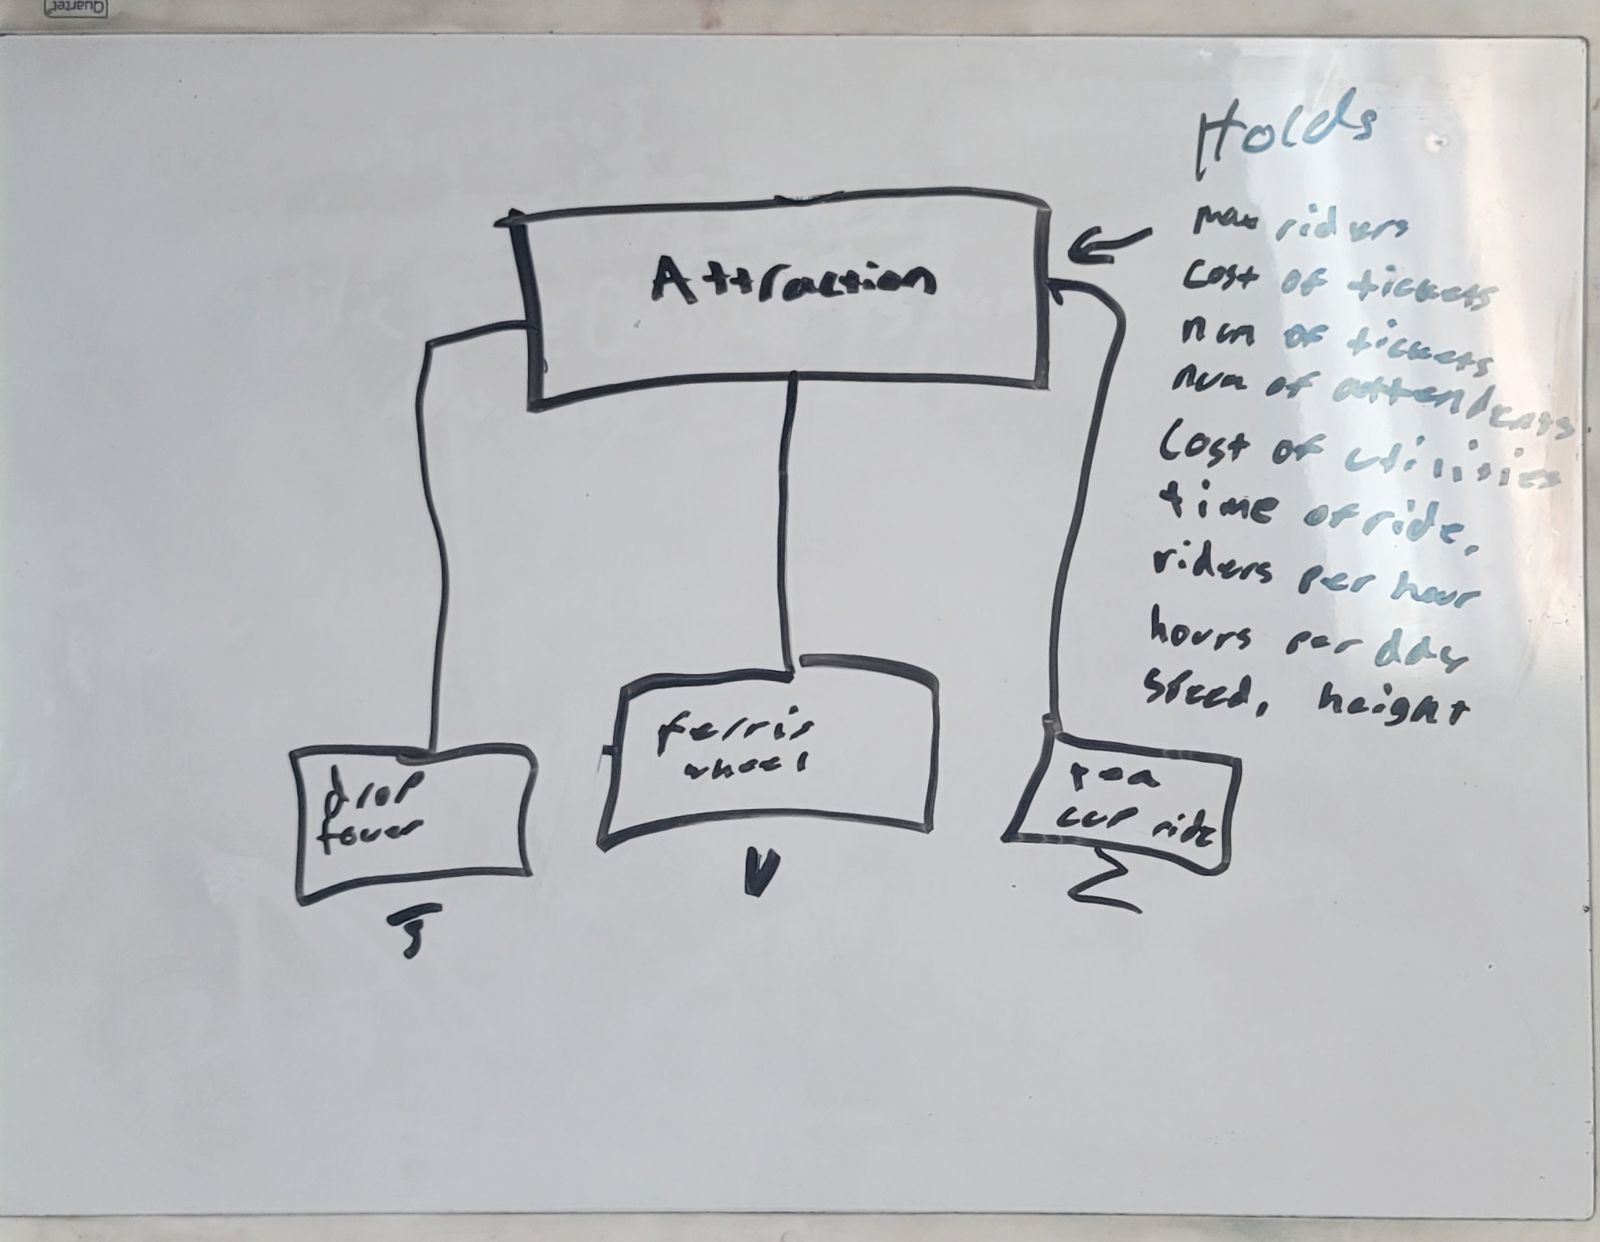 Quartet
Holds
Attraction
max riders
cost of tickets
num of tickets
num of attendents
Cost of utilities
time of ride,
riders per hour
hours per day
speed, height
drop
tower
ferris
wheel
tea
cup ride